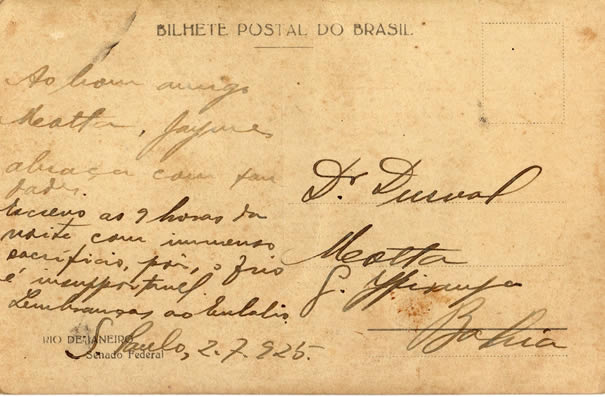 BILHETE POSTAL DO BRASIL
Ao bom amigo
Motta, Jaymes
abraça com sau
dades.
Escrevo as 9 horas da
noite com immenso
sacrificio, pois, o frio
é insupportavel
Lembranças ao Eulalio
S. Paulo, 2.7.925.
RIO DE JANEIRO
Senado Federal
Dr. Durval
Motta
Ypiranga
Bahia